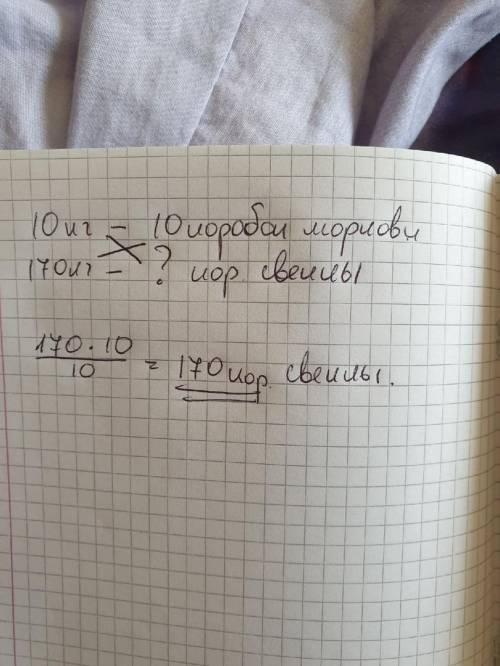 10кг - 10коробок моркови
170кг - ? кор. свеклы
170 · 10
10
= 170кор. свеклы.